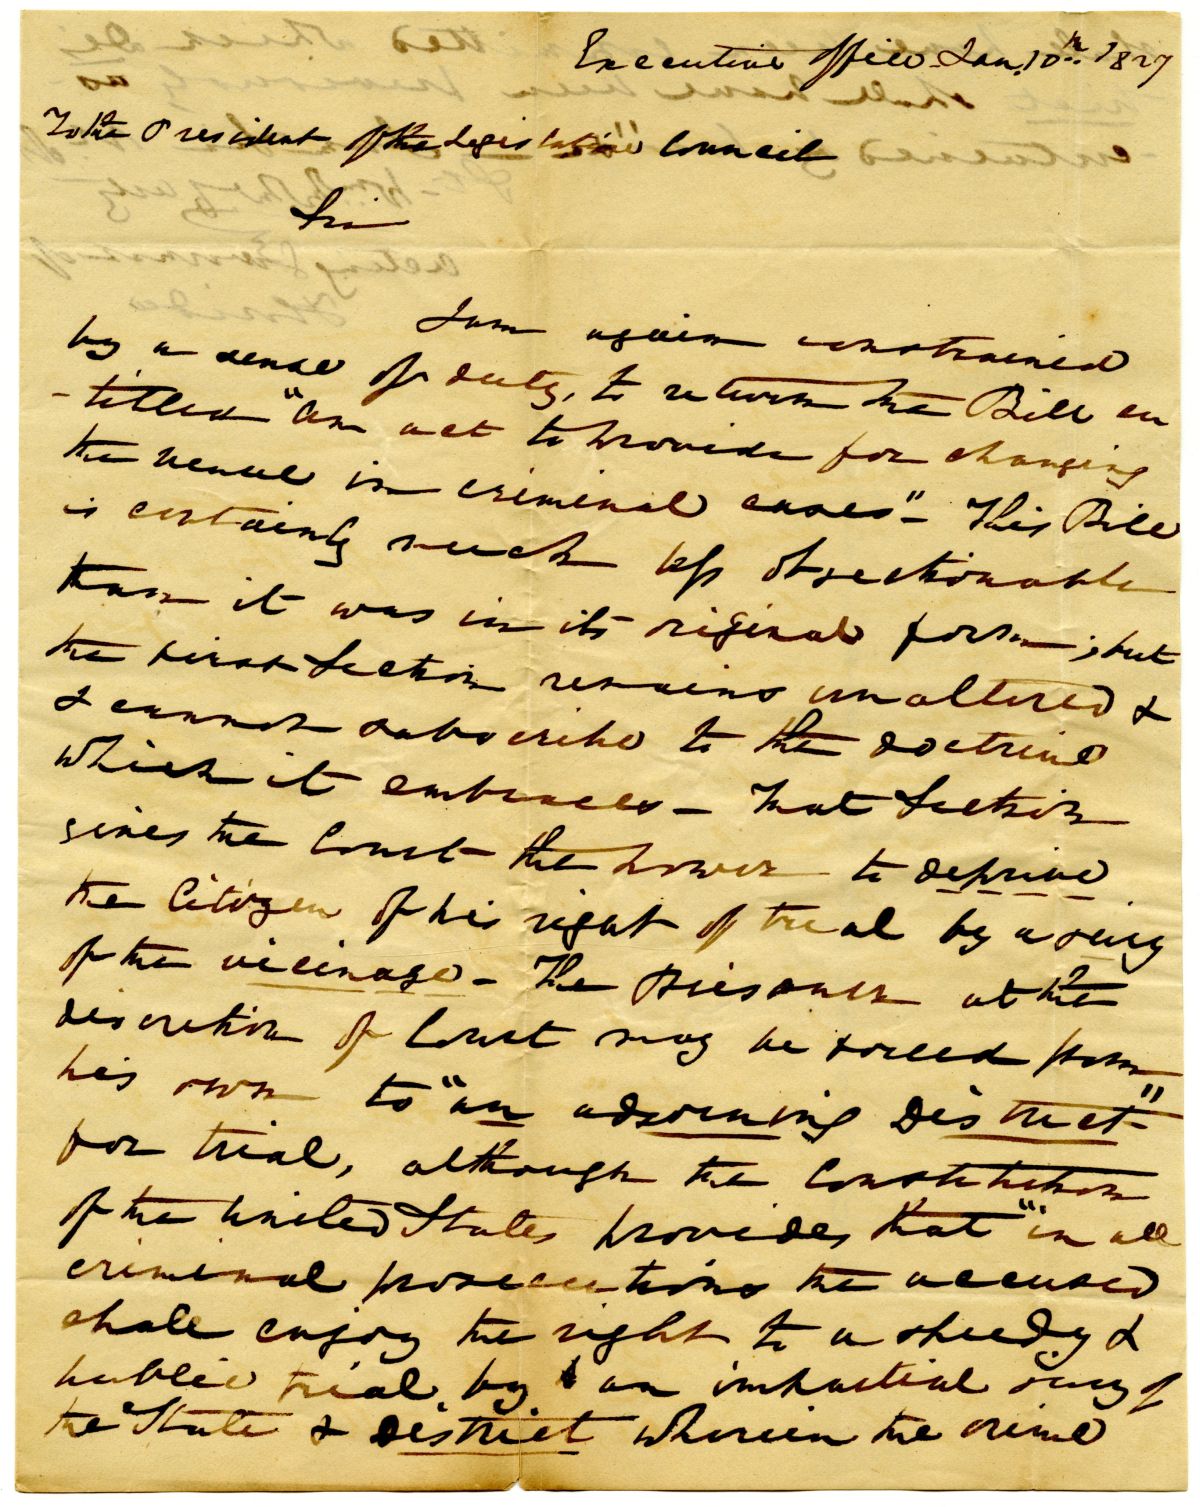 Executive office Jan. 10th. 1827
To the President of the Legislative Council
Sir
I am again constrained
by a sense of duty, to return the Bill en
-titled "An act to provide for changing
the venue in criminal cases" – This Bill
is certainly much less objectionable
than it was in its original form, but
the first Section remains unaltered &
I cannot subscribe to the doctrine
which it embraces – That Section
gives the Court the power to deprive
the Citizen of his right of trial by a jury
of the vicinage – The Prisoner at the
discretion of Court may be forced from
his own to "an adjoining District"
for trial, although the Constitution
of the United States provides that "in all
criminal prosecutions the accused
shall enjoy the right to a speedy &
public trial by an impartial jury of
the State & District wherein the crime